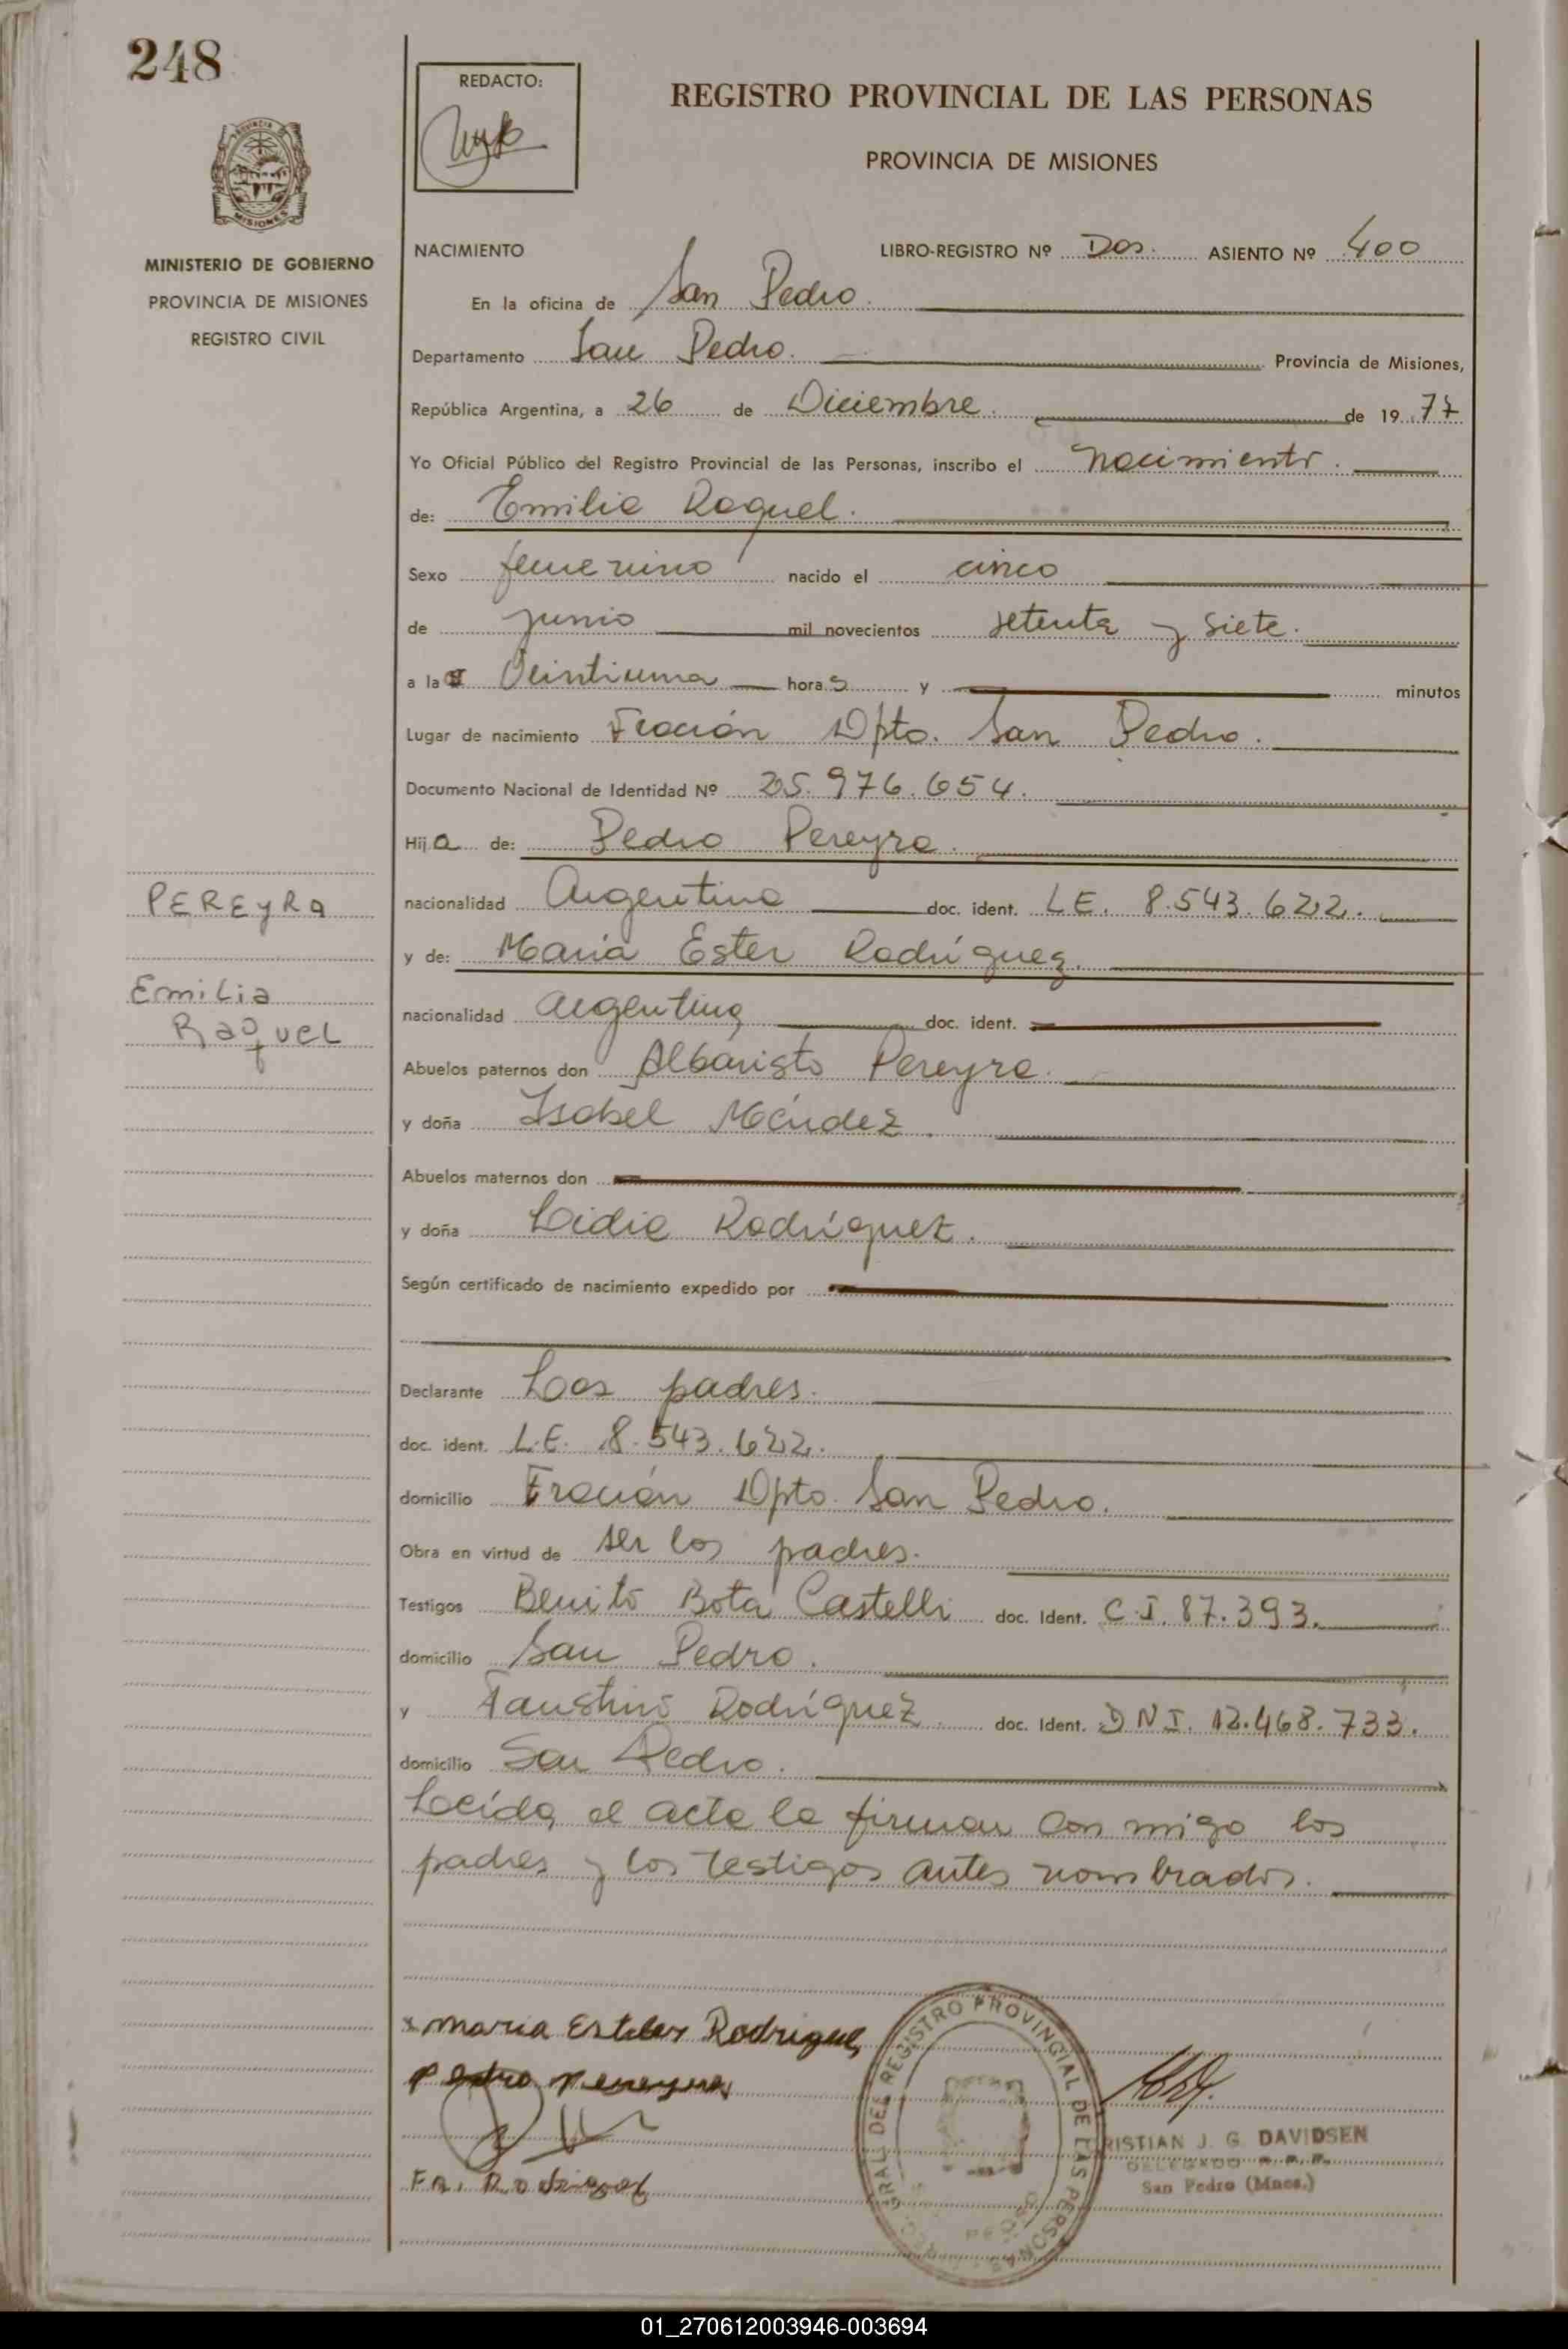 248
REDACTO:
REGISTRO PROVINCIAL DE LAS PERSONAS
PROVINCIA DE MISIONES
MISIONES
MINISTERIO DE GOBIERNO
PROVINCIA DE MISIONES
REGISTRO CIVIL
NACIMIENTO LIBRO-REGISTRO Nº Dos. ASIENTO Nº 400
En la oficina de San Pedro.
Departamento San Pedro. Provincia de Misiones,
República Argentina, a 26 de Diciembre. de 19 77
Yo Oficial Público del Registro Provincial de las Personas, inscribo el nacimiento.
de: Emilia Raquel.
Sexo femenino nacido el cinco
de junio mil novecientos setenta y siete.
a la Veintiuna horas y minutos
Lugar de nacimiento Fración Dpto. San Pedro.
Documento Nacional de Identidad Nº 25.976.654.
Hija de: Pedro Pereyra.
nacionalidad Argentina doc. ident. LE. 8.543.622.
PEREYRA
y de: Maria Ester Rodríguez.
Emilia
Raquel
nacionalidad argentina doc. ident.
Abuelos paternos don Albaristo Pereyra.
y doña Isabel Méndez.
Abuelos maternos don
y doña Lidia Rodríguez.
Según certificado de nacimiento expedido por
Declarante Los padres.
doc. ident. L.E. 8.543.622.
domicilio Fración Dpto. San Pedro.
Obra en virtud de ser los padres.
Testigos Benito Bota Castelli doc. Ident. C.I. 87.393.
domicilio San Pedro.
y Faustino Rodríguez doc. Ident. DNI. 12.468.733.
domicilio San Pedro.
Leída el acta la firman con migo los
padres y los testigos antes nombrados.
x maria Ester Rodriguez
Pedro Pereyra
Fa. Rodriguez
GRAL. DEL REGISTRO PROVINCIAL DE LAS PERSONAS
RISTIAN J. G. DAVIDSEN
DELEGADO R. P. P.
San Pedro (Mnes.)
01_270612003946-003694